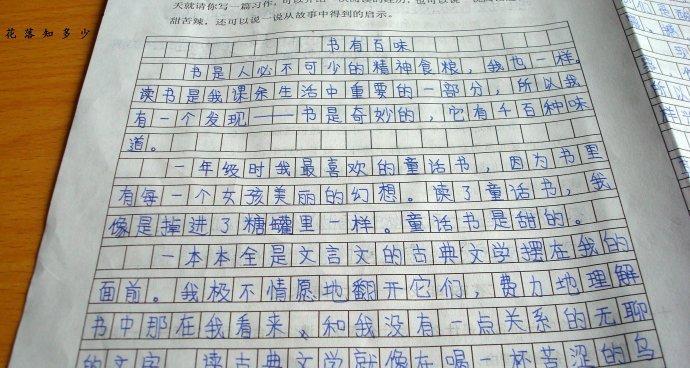 天就请你写一篇习作，可以
甜苦辣，还可以说一说从故事中得到的启示。
花落知多少
书有百味
书是人必不可少的精神食粮，我也一样。
读书是我课余生活中重要的一部分，所以我
有一个发现——书是奇妙的，它有千百种味
道。
一年级时我最喜欢的童话书，因为书里
有每一个女孩美丽的幻想。读了童话书，我
像是掉进了糖罐里一样。童话书是甜的。
一本本全是文言文的古典文学摆在我的
面前。我极不情愿地翻开它们，费力地理解
书中那在我看来、和我没有一点关系的无聊
的文字。读古典文学就像在喝一杯苦涩的乌